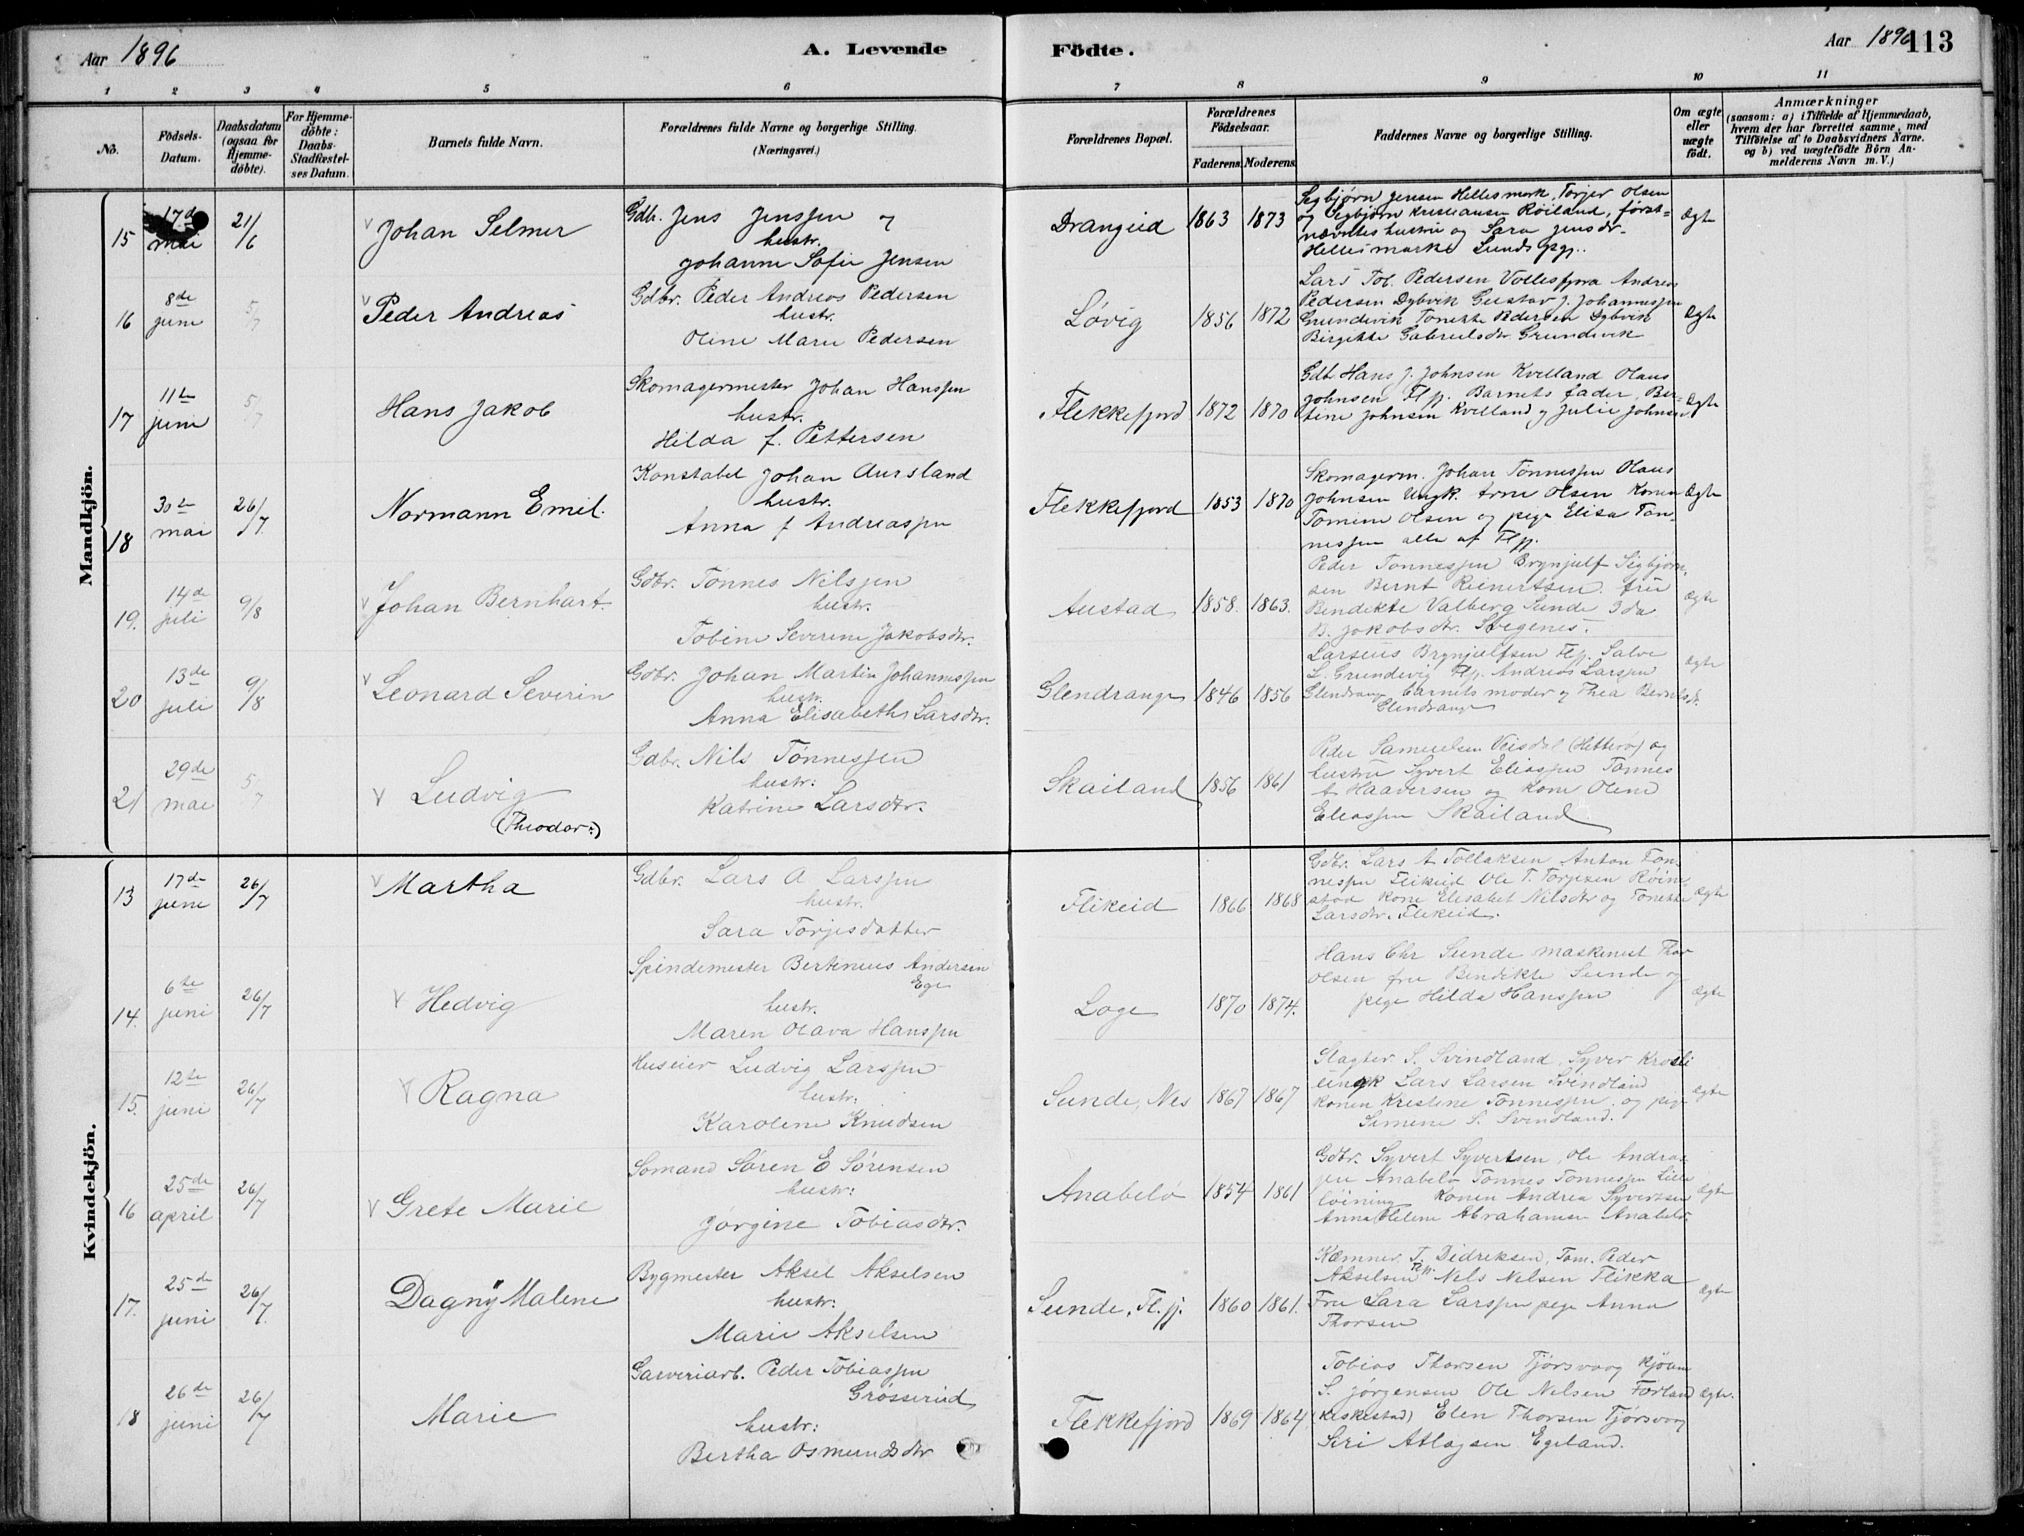 Aar 1896
A. Levende Födte.
Aar 1896 113
1 2 3 4 5 6 7 8 9 10 11
No.
Födsels-Datum.
Daabsdatum (ogsaa for Hjemme-döbte).
For Hjemme-döbte: Daabs-Stadfæstel-ses Datum.
Barnets fulde Navn.
Forældrenes fulde Navne og borgerlige Stilling. (Næringsvei.)
Forældrenes Bopæl.
Forældrenes Födselsaar.
Faderens. Moderens.
Faddernes Navne og borgerlige Stilling.
Om ægte eller uægte födt.
Anmærkninger
(saasom: a) i Tilfælde af Hjemmedaab, hvem der har forrettet samme, med Tilföielse af to Daabsvidners Navne. og b) ved uægtefödte Börn An-melderens Navn m. V.)
Mandkjön.
15 17de mai 21/6 Johan Selmer
Gdb. Jens Jenssen og
hustr.
Johanne Sofie Jensen
Drangeid 1863 1873
Sigbjørn Jensen Hellesmark, Torjer Olsen
og Sigbjørn Kristiansen Röiland, først-
nævntes hustru og Sara Jensdtr.
Hellesmark Lunds pgj.
Ægte
16 8de juni 5/7 Peder Andreas
Gdbr. Peder Andreas Pedersen
hustr.
Oline Marie Pedersen
Løvig 1856 1872
Lars Tob. Pedersen Vollesfjora Andreas
Pedersen Dybvik Gustav J. Johannessen
Grundevik Tonette Pedersen Dybvik
Birgitte Gabrielsdtr Grundevik
Ægte
17 11te juni 5/7 Hans Jakob
Skomagermester Johan Hanssen
hustr.
Hilda f. Pettersen
Flekkefjord 1872 1870
Gdb. Hans J. Johnsen Kvelland Olaus
Johnsen Flfj. Barnets fader, Ber-
tine Johnsen Kvelland og Julie Johnsen
Ægte
18 30te mai 26/7. Normann Emil.
Konstabel Johan Aursland
hustr.
Anna f Andreassen
Flekkefjord 1853 1870
Skomagerm. Johan Tønnessen Olaus
Johnsen Ungk. Arne Olsen Konen
Tomine Olsen og pige Elisa Tøn-
nessen alle af Flfj.
Ægte
19. 14de juli 9/8 Johan Bernhart.
Gdbr. Tönnes Nilssen
hustr.
Tobine Severine Jakobsdtr.
Austad 1858. 1863.
Peder Tönnessen Brynjulf Sigbjørn.
sen Bernt Reinertsen. fru
Bendikte Valberg Sunde
B. Jakobsdtr. Stegenes.
ægte
20 13de juli 9/8 Leonard Severin
Gdbr. Johan Martin Johannessen
hustr.
Anna Elisabeth Larsdtr.
Glendrange 1846 1856
Larsius Brynjulfsen Flfj. Salve
L. Grundevig Flfj. Andreas Larssen
Glendrange barnets moder og Thea Berntsdt.
Glendrange
ægte
21 29de mai 5/7 Ludvig
(Theodor:)
Gdbr. Nils Tønnessen
hustr:
Katrine Larsdtr.
Skailand 1856 1861
Peder Samuelsen Veisdal (Hitterø) og
hustru Syvert Eliassen Tønnes
A Haaversen og Kone Oline
Eliassen Skailand
Kvindekjön.
13 17de juni 26/7 Martha
Gdbr. Lars A Larssen
hustr.
Sara Torjesdatter
Flikeid 1866 1868
Gdbr. Lars A Tollaksen, Anton Tøn-
nessen Flikeid Ole T. Torjesen Röine-
stad Kone Elisabet Nilsdtr og Tonette
Larsdtr. Flikeid.
ægte
14. 6te juni 26/7 Hedvig
Spindemester Bertinius Andersen
Ege
hustr.
Maren Olava Hanssen
Loge 1870 1874.
Hans Chr Sunde maskinist Thor
Olsen fru Bendikte Sunde og
pige Hilda Hanssen
ægte
15. 12te juni 26/7 Ragna
Huseier Ludvig Larssen
hustr:
Karoline Knudsen
Sunde, Nes 1867 1867
Slagter S. Svindland, Syver Krosli
ungk Lars Larsen Svindland
Konen Kristine Tønnessen. og pige
Simine S. Svindland.
ægte
16 25de april 26/7 Grete Marie
Sömand Søren E Sørensen
hustr:
Jørgine Tobiasdtr.
Anabelø 1854 1861
Gdbr. Syvert Syvertsen, Ole Andreas-
sen Anabelø Tønnes Tønnessen Lille
löining Konen Andrea Syvertsen
Anna Helene Abrahamsen Anabelø.
ægte
17. 25de juni 26/7. Dagny Malene
Bygmester Aksel Akselsen
hustr:
Marie Akselsen
Sunde, Fl.fj. 1860 1861.
Kæmner T. Didriksen, Tøm. Peder
Akselsen Flfj. Nils Nilsen Flikka
Fru Sara Larssen pige Anna
Thorsen
ægte
18 26de juni 26/7 Marie
Garveriarb. Peder Tobiassen
Grösserud
hustr:
Bertha Osmundsdtr
Flekkefjord 1869 1864
Tobias Thorsen Tjørsvaag
S. Jørgensen Ole Nilsen Førland
(Fiskestad) Elen Thorsen Tjørsvaag
Siri Atlagsen Egeland.
Ægte.